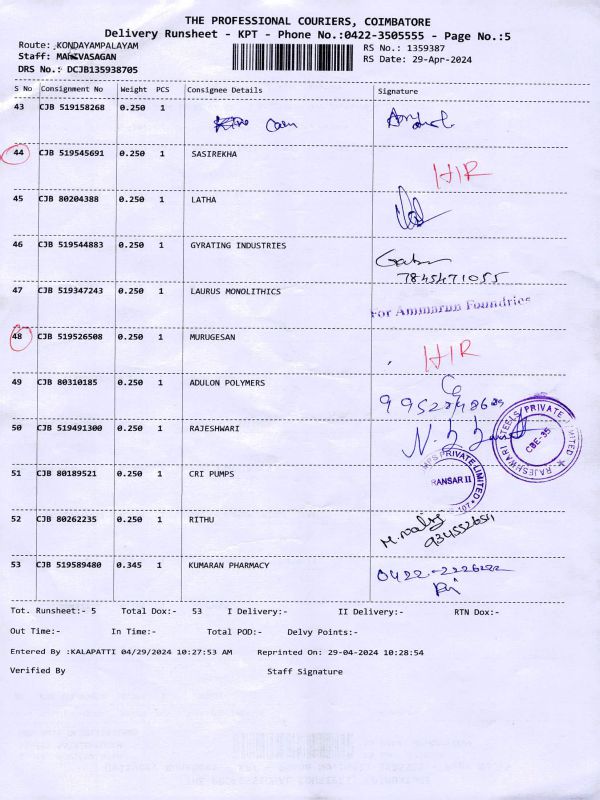 THE PROFESSIONAL COURIERS, COIMBATORE
Delivery Runsheet - KPT - Phone No.:0422-3505555 - Page No.:5
Route: KONDAYAMPALAYAM
RS No.: 1359387
Staff: MANIVASAGAN
RS Date: 29-Apr-2024
DRS No.: DCJB135938705
S No Consignment No Weight PCS Consignee Details Signature
43 CJB 519158268 0.250 1
44 CJB 519545691 0.250 1 SASIREKHA
HIR
45 CJB 80204388 0.250 1 LATHA
46 CJB 519544883 0.250 1 GYRATING INDUSTRIES
7845471055
47 CJB 519347243 0.250 1 LAURUS MONOLITHICS
For Ammarun Foundries
48 CJB 519526508 0.250 1 MURUGESAN
HIR
49 CJB 80310185 0.250 1 ADULON POLYMERS
50 CJB 519491300 0.250 1 RAJESHWARI
RAJESHWARI STEELS PRIVATE LIMITED
CBE-35
51 CJB 80189521 0.250 1 CRI PUMPS
PRIVATE LIMITED
RANSAR II
107
52 CJB 80262235 0.250 1 RITHU
53 CJB 519589480 0.345 1 KUMARAN PHARMACY
0422-2226222
Tot. Runsheet:- 5 Total Dox:- 53 I Delivery:- II Delivery:- RTN Dox:-
Out Time:- In Time:- Total POD:- Delvy Points:-
Entered By :KALAPATTI 04/29/2024 10:27:53 AM Reprinted On: 29-04-2024 10:28:54
Verified By Staff Signature